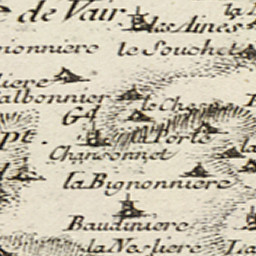 e de Vair
les Aines
la
nionniere
le Souchet
liere
albonnier
le Chesne
Gd
pt.
la Porte
Chansonnet
la
la Bignonniere
Baudiniere
la Nesliere
La